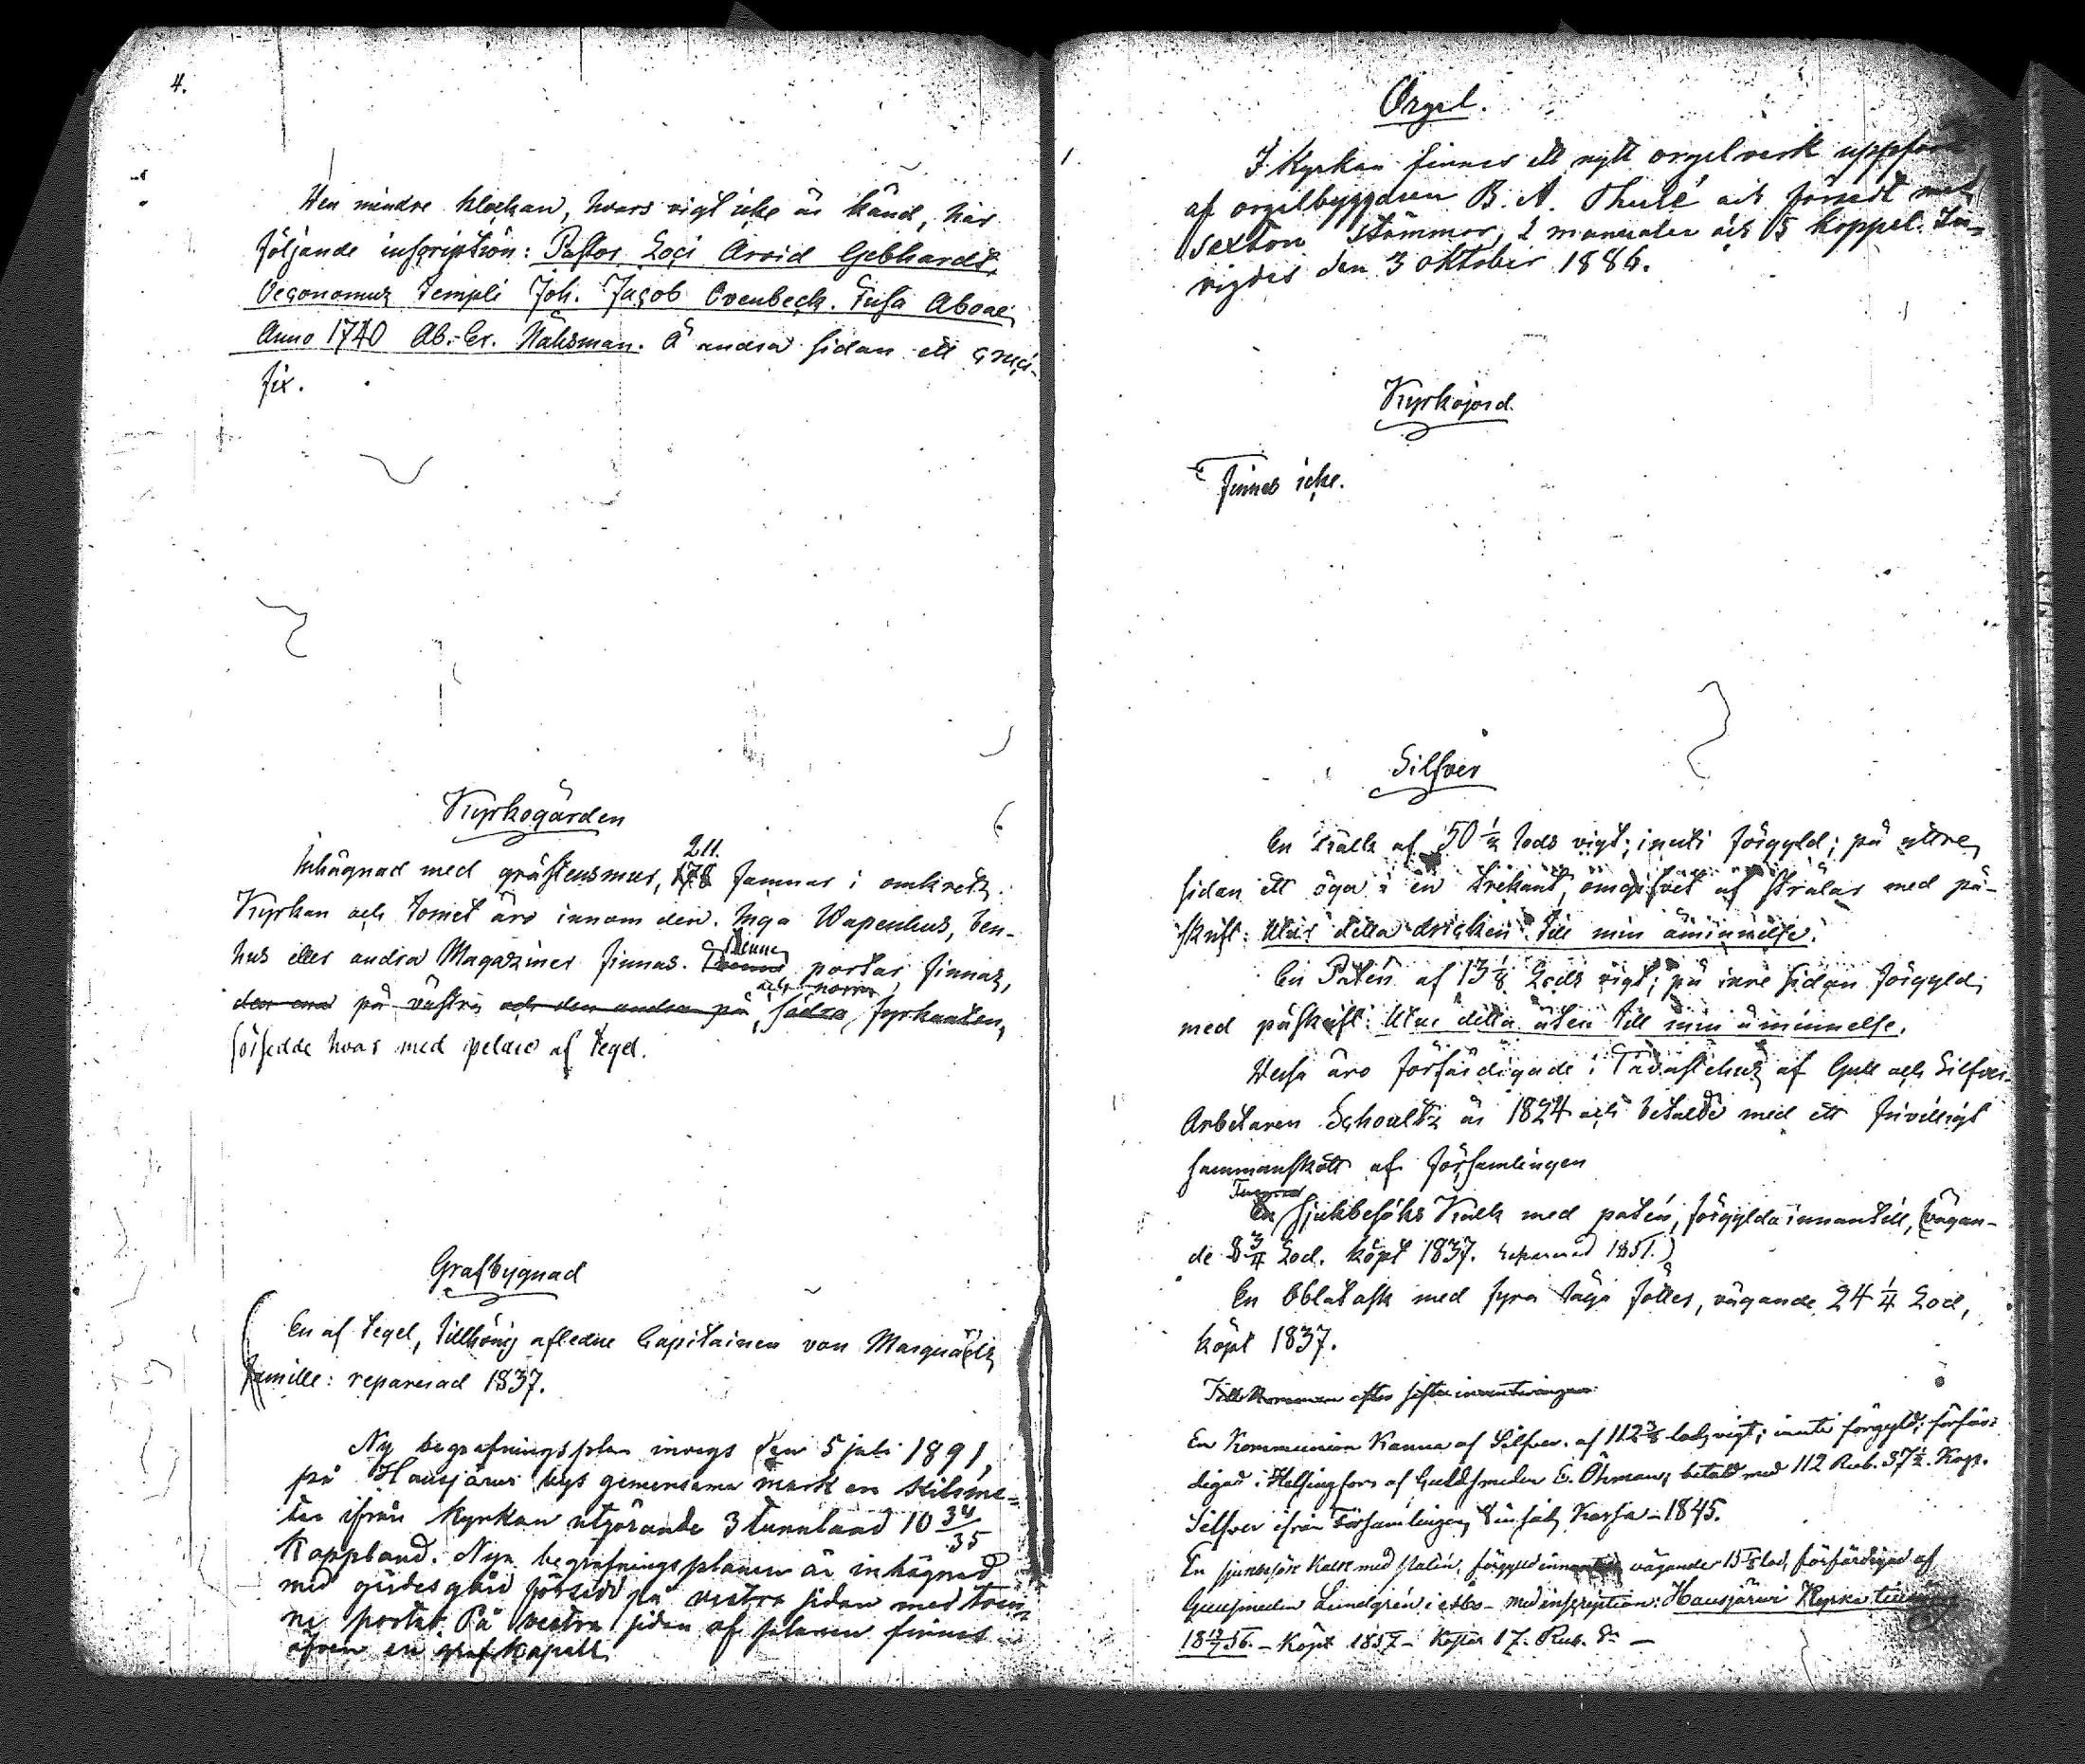 4.
Den mindre klockan, hvars vigt icke är känd, har
följande inscription: Pastor Loci Arvid Gebhardt,
Oeconomus Templi Joh. Jacob Ovenbeck. Fusa Aboae
Anno 1740 Ab. Er. Näksman. Å andra sidan ett cruci-
fix.
Kyrkogården
211.
Inhägnad med gråstensmur, 178 famnar i omkrets.
Kyrkan och tornet äro innom den. Inga Wapenhus, ben-
hus eller andra Magaziner finnas. Tvenne portar finnas,
och norra
den ena på västra och den andra på södra fyrkanten,
försedde hvar med pelare af tegel.
Grafbygnad
En af tegel, tillhörig afledne Capitainen von
famille: reparerad 1837.
Ny begrafningsplan invigs den 5 juli 1891,
på Hausjärvi bys gemensama mark en kilome-
ter ifrån kyrkan utgörande 3 tunnland 10 34/35
kappland. Nya begrafningsplanen är inhägnad
med gärdesgård försedd på vestra sidan med tven-
ne portar. På vestra sidan af planen finnes
äfven en grafkapell.
Orgel.
I Kyrkan finnes ett nytt orgelverk uppfördt
af orgelbyggaren B. A. Thulé och försedt med
sexton stämmor, 2 manualer och 5 koppel. In-
vigdes den 3 oktober 1886.
Kyrkojord.
Finnes icke.
Silfver
En Kalk af 50 1/2 lods vigt; inuti förgyld; på yttre
sidan ett öga i en trekant, omgifvet af strålar med på-
skrift: Utur detta dricken till min åminnelse.
En Patén af 13 1/8 Lods vigt; på inre sidan förgyld;
med påskrift: Utur detta äten till min åminnelse.
Dessa äro förfärdigade i Tavastehus af Gull och Silfver-
Arbetaren Schoultz år 1824 och betalde med ett frivilligt
sammanskott af församlingen
En sjukbesöks Kalk med patén, förgylda innantill, (vägan-
de 8 3/4 Lod. köpt 1837. reparerad 1851.)
En Oblatask med fyra fötter, vägande 24 1/4 Lod,
köpt 1837.
Tillkommen efter sista inventeringen:
En Kommunion Kanna af Silfver. af 112 3/8 lods vigt; inuti förgyld; förfär-
digad i Helsingfors af Guldsmeden E. Öhman; betald med 112 Rub. 37 1/2 Kop.
Silfver ifrån Församlingens Kassa - 1845.
En sjukbesöks Kalk med patén, förgylld innantill vägande 15 lod, förfärdigad af
Gullsmeden Lundgrén i Åbo - med inscription: Hausjärvi Kyrka
18 56. - Köpt 1857 - Kostar 17. Rub. Sr -